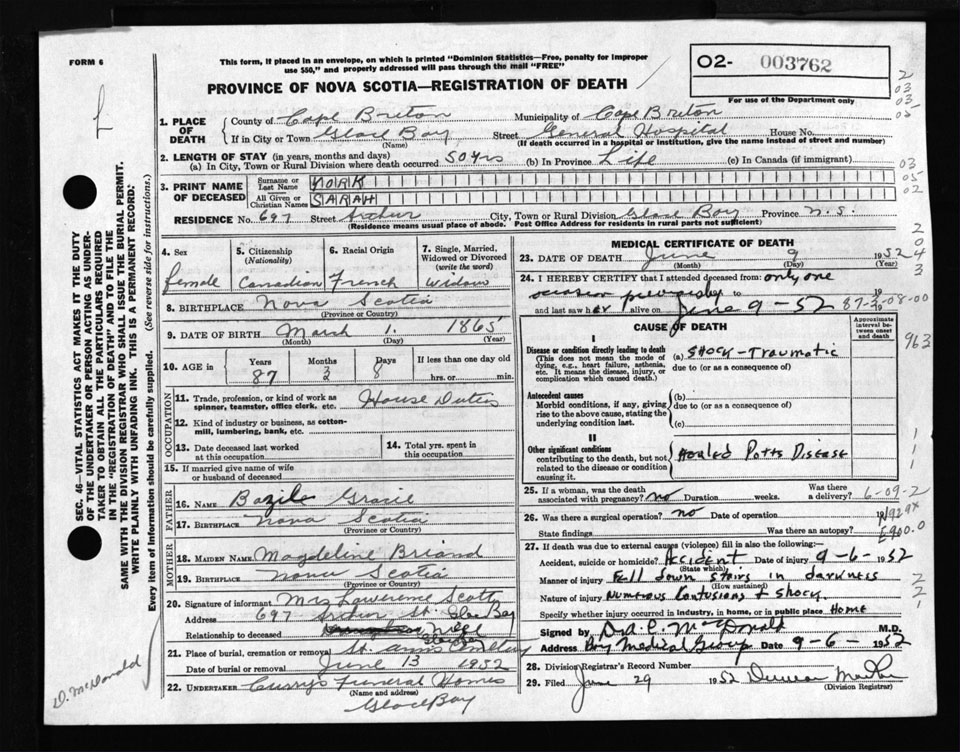 FORM 6
This form, if placed in an envelope, on which is printed "Dominion Statistics—Free, penalty for improper
use $50," and properly addressed will pass through the mail "FREE"
O2- 003762
For use of the Department only
PROVINCE OF NOVA SCOTIA—REGISTRATION OF DEATH
1. PLACE OF DEATH
County of Cape Breton Municipality of Cape Breton
If in City or Town Glace Bay Street General Hospital House No.
(Name) (If death occurred in a hospital or institution, give the name instead of street and number)
2. LENGTH OF STAY (in years, months and days)
(a) In City, Town or Rural Division where death occurred 50 yrs (b) In Province Life (c) In Canada (if immigrant)
3. PRINT NAME OF DECEASED
Surname or Last Name YORK
All Given or Christian Names SARAH
RESIDENCE No. 697 Street City, Town or Rural Division Glace Bay Province N.S.
(Residence means usual place of abode. Post Office Address for residents in rural parts not sufficient)
4. Sex female
5. Citizenship (Nationality) Canadian
6. Racial Origin French
7. Single, Married, Widowed or Divorced (write the word) Widow
8. BIRTHPLACE Nova Scotia
(Province or Country)
9. DATE OF BIRTH March 1. 1865
(Month) (Day) (Year)
10. AGE in Years 87 Months 3 Days 8 If less than one day old hrs. or min.
OCCUPATION
11. Trade, profession, or kind of work as spinner, teamster, office clerk, etc. House Duties
12. Kind of industry or business, as cotton-mill, lumbering, bank, etc.
13. Date deceased last worked at this occupation
14. Total yrs. spent in this occupation
15. If married give name of wife or husband of deceased
FATHER
16. NAME Bazile Gracie
17. BIRTHPLACE Nova Scotia
(Province or Country)
MOTHER
18. MAIDEN NAME Magdeline Briand
19. BIRTHPLACE Nova Scotia
(Province or Country)
20. Signature of informant Mrs Lawerence Scott
Address 697 St. Glce Bay
Relationship to deceased
21. Place of burial, cremation or removal St. Anns Cemetery
Date of burial or removal June 13 1952
22. UNDERTAKER Curry's Funeral Homes
(Name and address)
Glace Bay
MEDICAL CERTIFICATE OF DEATH
23. DATE OF DEATH June 9 1952
(Month) (Day) (Year)
24. I HEREBY CERTIFY that I attended deceased from only one
occasion previously to 19
and last saw her alive on June 9 - 52 19
87-3-08-00
CAUSE OF DEATH
Approximate interval between onset and death
I
Disease or condition directly leading to death
(This does not mean the mode of dying, e.g., heart failure, asthenia, etc. It means the disease, injury, or complication which caused death.
(a) SHOCK - Traumatic
due to (or as a consequence of)
963
Antecedent causes
Morbid conditions, if any, giving rise to the above cause, stating the underlying condition last.
(b)
due to (or as a consequence of)
(c)
II
Other significant conditions
contributing to the death, but not related to the disease or condition causing it.
Healed Potts Disease
25. If a woman, was the death associated with pregnancy? no Duration weeks. Was there a delivery? 6-09-2
26. Was there a surgical operation? no Date of operation 19
State findings Was there an autopsy? E900.0
27. If death was due to external causes (violence) fill in also the following:—
Accident, suicide or homicide? Accident Date of injury 9-6- 1952
(State which)
Manner of injury Fell down stairs in darkness
(How sustained)
Nature of injury Numerous contusions + shock.
Specify whether injury occurred in industry, in home, or in public place Home
Signed by Dr A.P. McDonald M.D.
Address Bay Medical Group Date 9-6- 1952
28. Division Registrar's Record Number
29. Filed June 29 1952 Duncan
(Division Registrar)
SEC. 46—VITAL STATISTICS ACT MAKES IT THE DUTY
OF THE UNDERTAKER OR PERSON ACTING AS UNDER-
TAKER TO OBTAIN ALL THE PARTICULARS REQUIRED
IN THE "REGISTRATION OF DEATH" AND TO FILE THE
SAME WITH THE DIVISION REGISTRAR WHO SHALL ISSUE THE BURIAL PERMIT.
WRITE PLAINLY WITH UNFADING INK. THIS IS A PERMANENT RECORD.
Every item of Information should be carefully supplied. (See reverse side for instructions.)
D. McDonald